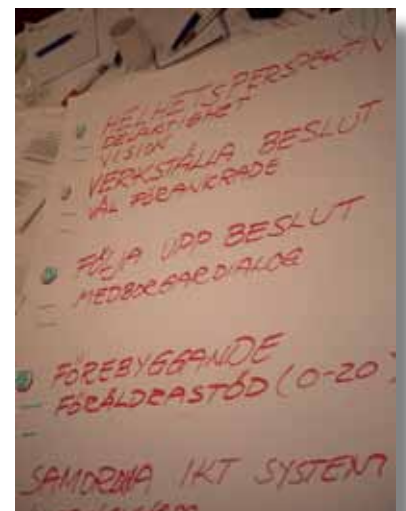 HELHETSPERSPEKTIV
DELAKTIGHET
VISION
VERKSTÄLLA BESLUT
VÄL FÖRANKRADE
FÖLJA UPP BESLUT
MEDBORGARDIALOG
FÖREBYGGANDE
FÖRÄLDRASTÖD (0-20)
SAMORDNA IKT SYSTEM